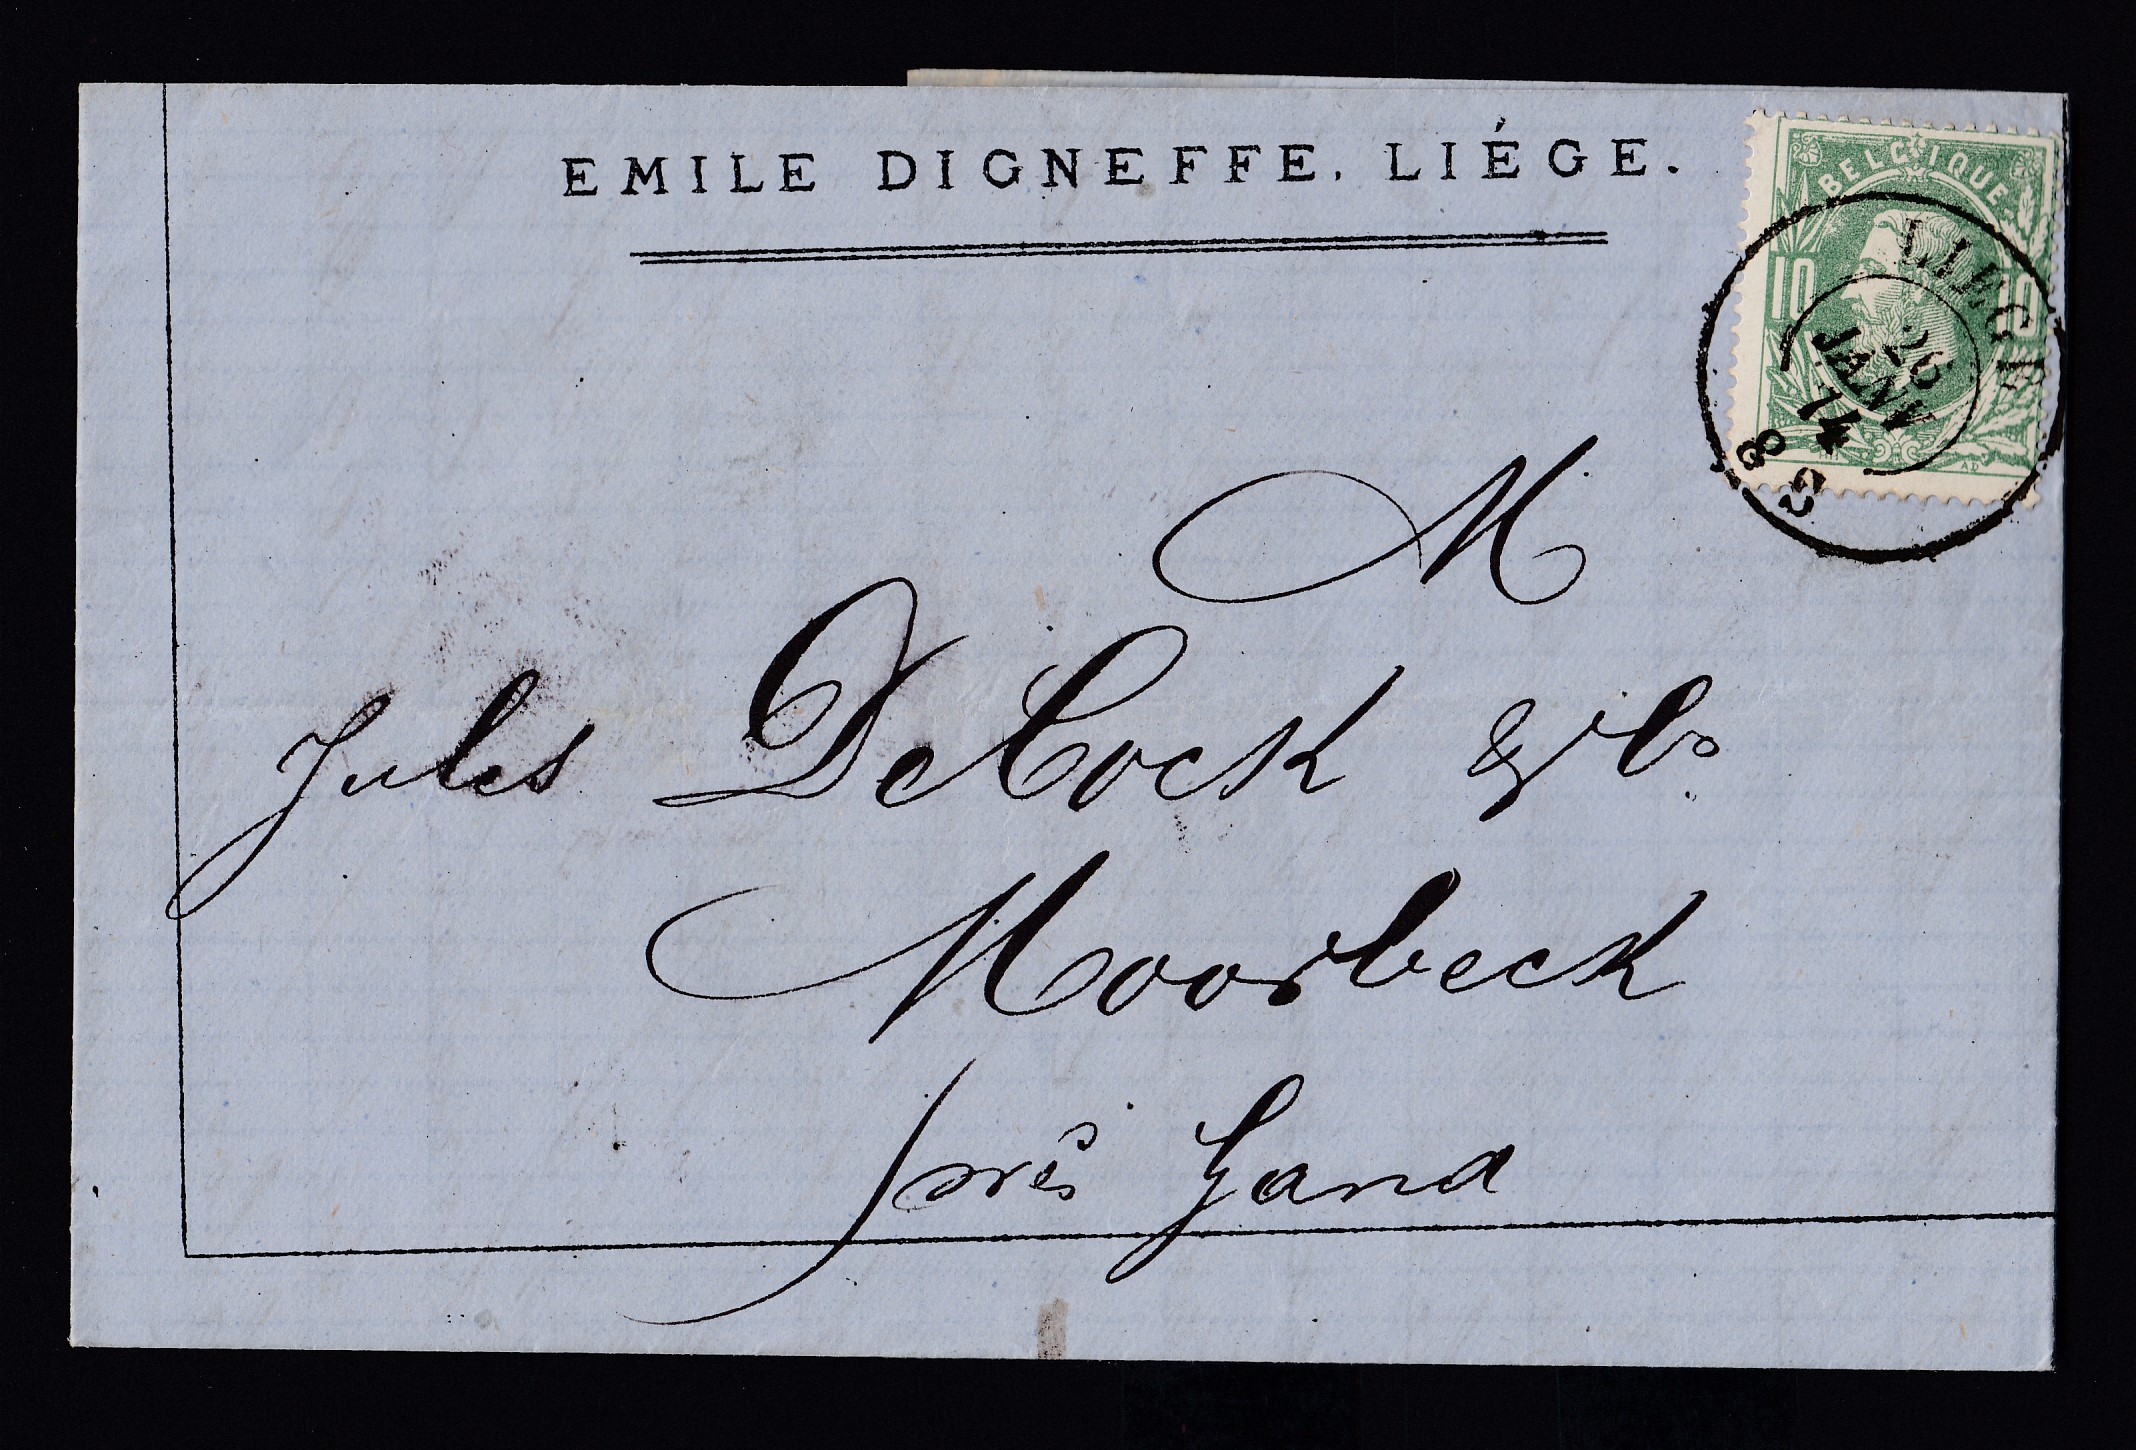 EMILE DIGNEFFE. LIÉGE.
BELGIQUE
10 10
LIEGE
26
JANV
74
8 S
M
Jules DeCock & Co.
Moorbeck
près Gand